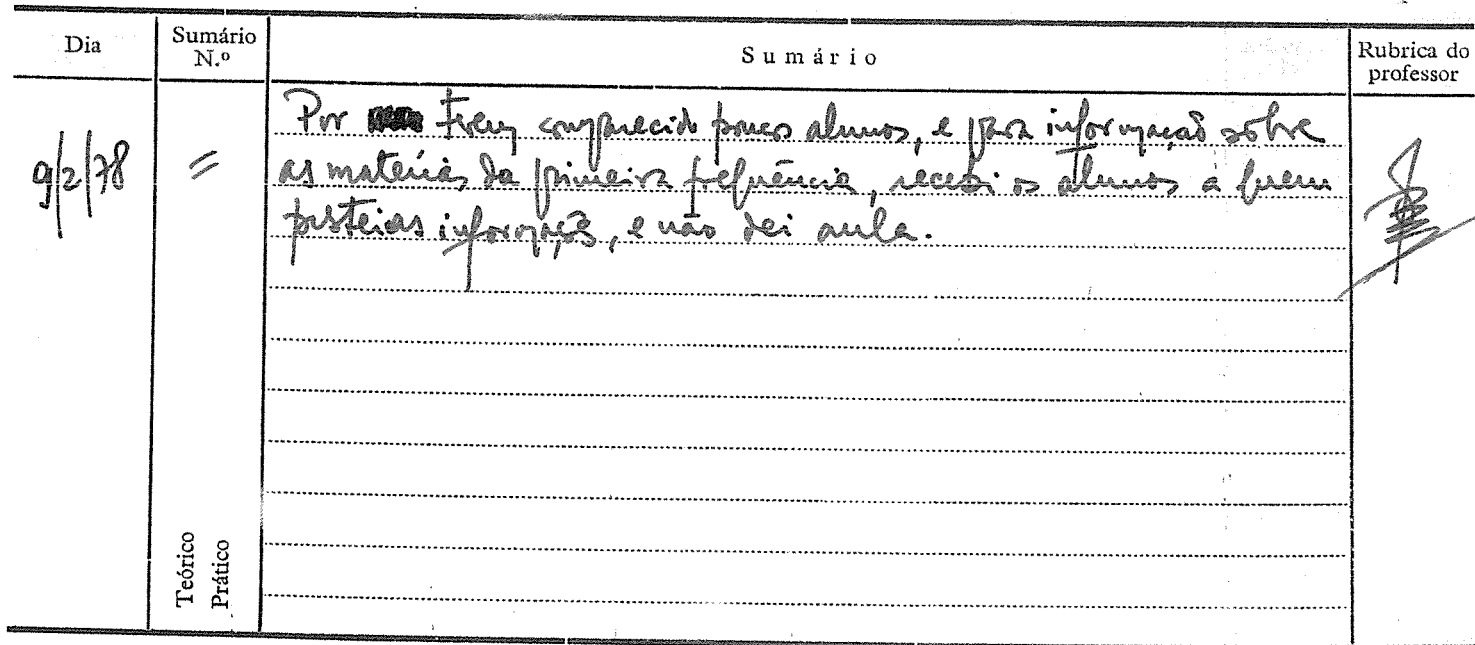 Dia
Sumário N.º
Sumário
Rubrica do professor
9/2/78
=
Por terem comparecido poucos alunos, e para informação sôbre
as matérias da primeira frequência, recebi os alunos a quem
prestei as informações, e não dei aula.
Teórico
Prático